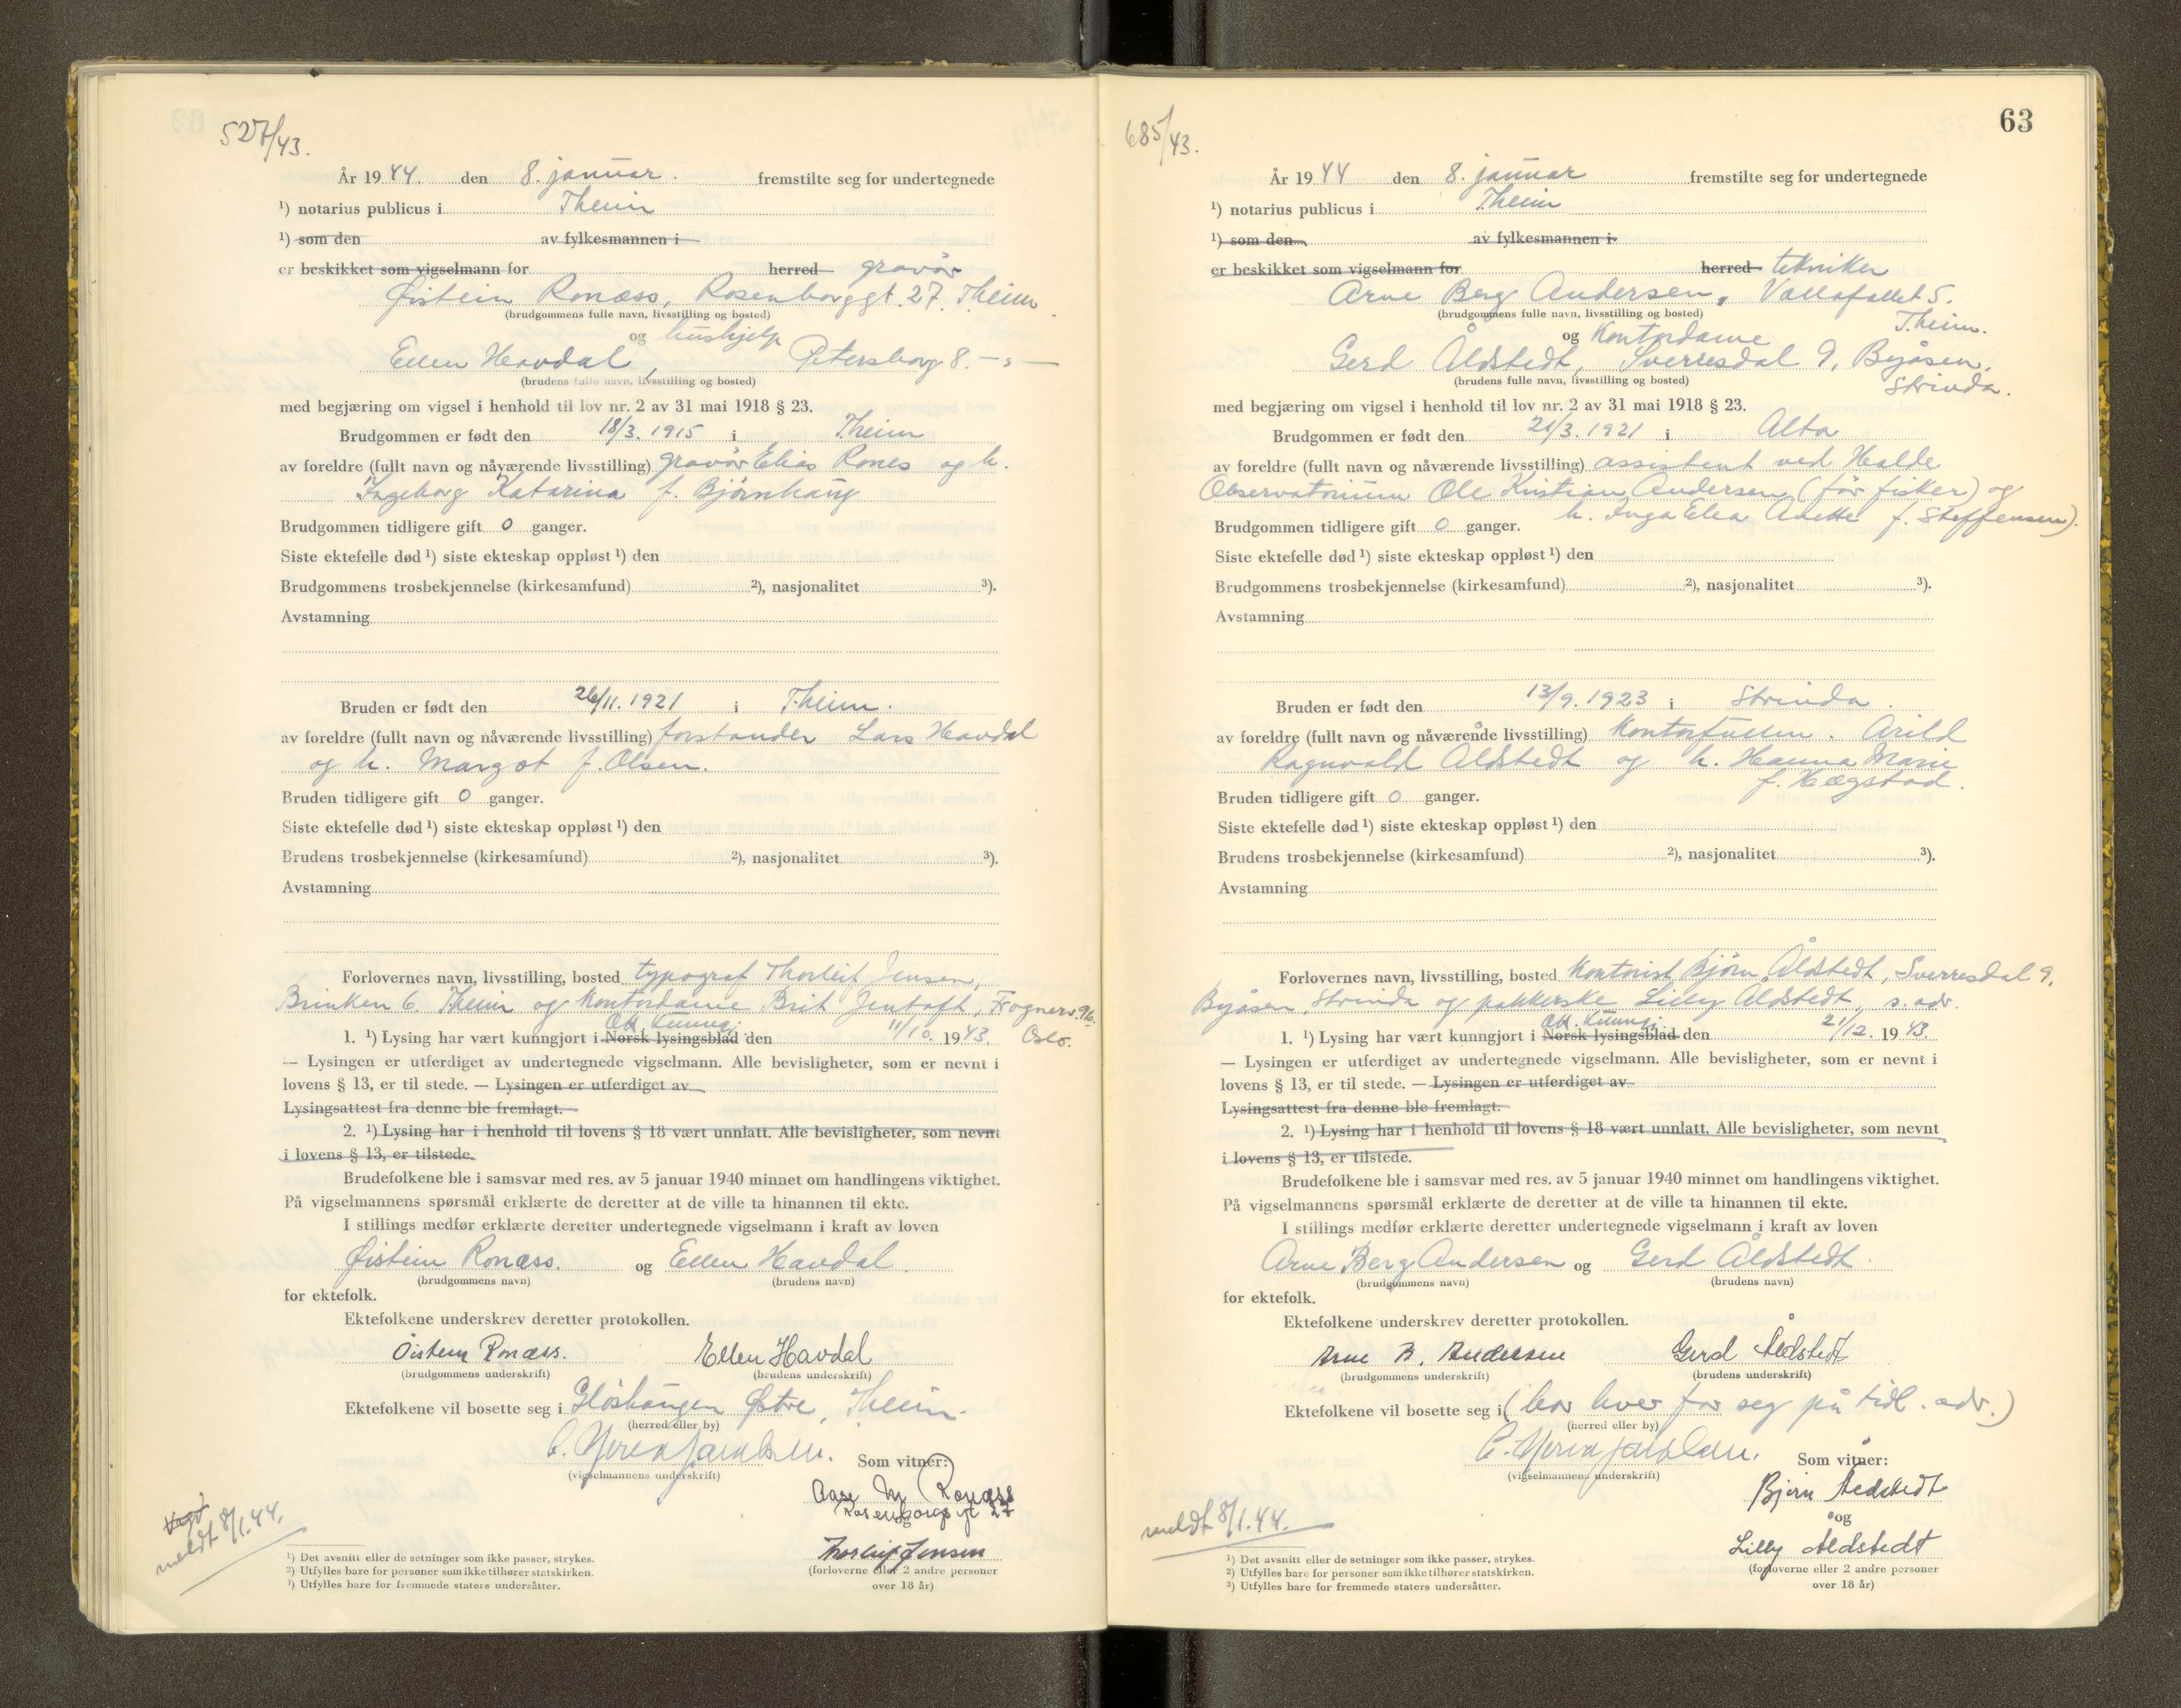 527/43.
År 1944. den 8. januar. fremstilte seg for undertegnede
¹) notarius publicus i Theim
¹) som den av fylkesmannen i
er beskikket som vigselmann for herred gravør
Øistein Ronæss, Rosenborggt. 27. Theim.
(brudgommens fulle navn, livsstilling og bosted)
og hushjelp
Ellen Havdal, Petersborg 8. -"-
(brudens fulle navn, livsstilling og bosted)
med begjæring om vigsel i henhold til lov nr. 2 av 31 mai 1918 § 23.
Brudgommen er født den 18/3. 1915 i Theim
av foreldre (fullt navn og nåværende livsstilling) gravør Elias Rones og h.
Ingeborg Katarina f. Bjørnhaug
Brudgommen tidligere gift 0 ganger.
Siste ektefelle død ¹) siste ekteskap oppløst ¹) den
Brudgommens trosbekjennelse (kirkesamfund) ²), nasjonalitet ³).
Avstamning
Bruden er født den 26/11. 1921 i Theim.
av foreldre (fullt navn og nåværende livsstilling) forstander Lars Havdal
og h. Margot f. Olsen.
Bruden tidligere gift 0 ganger.
Siste ektefelle død ¹) siste ekteskap oppløst ¹) den
Brudens trosbekjennelse (kirkesamfund) ²), nasjonalitet ³).
Avstamning
Forlovernes navn, livsstilling, bosted typograf Thorleif Jensen,
Brinken 6. Theim og kontordame Brit Jentoft, Frognerv. 9b.
Off. kunngj.
1. ¹) Lysing har vært kunngjort i Norsk lysingsblad den 11/10. 1943. Oslo.
— Lysingen er utferdiget av undertegnede vigselmann. Alle bevisligheter, som er nevnt i
lovens § 13, er til stede. — Lysingen er utferdiget av
Lysingsattest fra denne ble fremlagt.
2. ¹) Lysing har i henhold til lovens § 18 vært unnlatt. Alle bevisligheter, som nevnt
i lovens § 13, er tilstede.
Brudefolkene ble i samsvar med res. av 5 januar 1940 minnet om handlingens viktighet.
På vigselmannens spørsmål erklærte de deretter at de ville ta hinannen til ekte.
I stillings medfør erklærte deretter undertegnede vigselmann i kraft av loven
Øistein Ronæss. og Ellen Havdal.
(brudgommens navn) (brudens navn)
for ektefolk.
Ektefolkene underskrev deretter protokollen.
Öistein Ronæss. Ellen Havdal
(brudgommens underskrift) (brudens underskrift)
Ektefolkene vil bosette seg i Gløshaugen Østre, Theim.
(herred eller by)
Som vitner:
(vigselmannens underskrift)
Aase Ronæss
Rosenborgs gt 27
og
Thorleif Jensen
(forloverne eller 2 andre personer
over 18 år)
meldt 8/1.44.
¹) Det avsnitt eller de setninger som ikke passer, strykes.
²) Utfylles bare for personer som ikke tilhører statskirken.
³) Utfylles bare for fremmede staters undersåtter.
63
685/43.
År 1944 den 8. januar fremstilte seg for undertegnede
¹) notarius publicus i Theim
¹) som den av fylkesmannen i
er beskikket som vigselmann for herred tekniker
Arne Berg Andersen, Vollafallet 5.
(brudgommens fulle navn, livsstilling og bosted) Theim.
og Kontordame
Gerd Åldstedt, Sverresdal 9, Byåsen,
(brudens fulle navn, livsstilling og bosted) Strinda.
med begjæring om vigsel i henhold til lov nr. 2 av 31 mai 1918 § 23.
Brudgommen er født den 21/3. 1921 i Alta
av foreldre (fullt navn og nåværende livsstilling) assistent ved Halde
Observatorium Ole Kristian Andersen (før fisker) og
h. Inga Elea Anette f. Steffensen).
Brudgommen tidligere gift 0 ganger.
Siste ektefelle død ¹) siste ekteskap oppløst ¹) den
Brudgommens trosbekjennelse (kirkesamfund) ²), nasjonalitet ³).
Avstamning
Bruden er født den 13/9. 1923 i Strinda.
av foreldre (fullt navn og nåværende livsstilling) kontorfullm. Arild
Ragnvald Aldstedt og h. Hanna Marie
f. Hægstad.
Bruden tidligere gift 0 ganger.
Siste ektefelle død ¹) siste ekteskap oppløst ¹) den
Brudens trosbekjennelse (kirkesamfund) ²), nasjonalitet ³).
Avstamning
Forlovernes navn, livsstilling, bosted Kontorist Bjørn Åldstedt, Sverresdal 9,
Byåsen, Strinda og pakkerske Lilly Aldstedt, s. adr.
Off. kunngj.
1. ¹) Lysing har vært kunngjort i Norsk lysingsblad den 21/12. 1943.
— Lysingen er utferdiget av undertegnede vigselmann. Alle bevisligheter, som er nevnt i
lovens § 13, er til stede. — Lysingen er utferdiget av
Lysingsattest fra denne ble fremlagt.
2. ¹) Lysing har i henhold til lovens § 18 vært unnlatt. Alle bevisligheter, som nevnt
i lovens § 13, er tilstede.
Brudefolkene ble i samsvar med res. av 5 januar 1940 minnet om handlingens viktighet.
På vigselmannens spørsmål erklærte de deretter at de ville ta hinannen til ekte.
I stillings medfør erklærte deretter undertegnede vigselmann i kraft av loven
Arne Berg Andersen og Gerd Åldstedt.
(brudgommens navn) (brudens navn)
for ektefolk.
Ektefolkene underskrev deretter protokollen.
Arne B. Andersen Gerd Åldstedt
(brudgommens underskrift) (brudens underskrift)
Ektefolkene vil bosette seg i (bor hver for seg på tidl. adr.)
(herred eller by)
Som vitner:
(vigselmannens underskrift)
Bjørn Aldstedt
og
Lilly Aldstedt
(forloverne eller 2 andre personer
over 18 år)
meldt 8/1.44.
¹) Det avsnitt eller de setninger som ikke passer, strykes.
²) Utfylles bare for personer som ikke tilhører statskirken.
³) Utfylles bare for fremmede staters undersåtter.